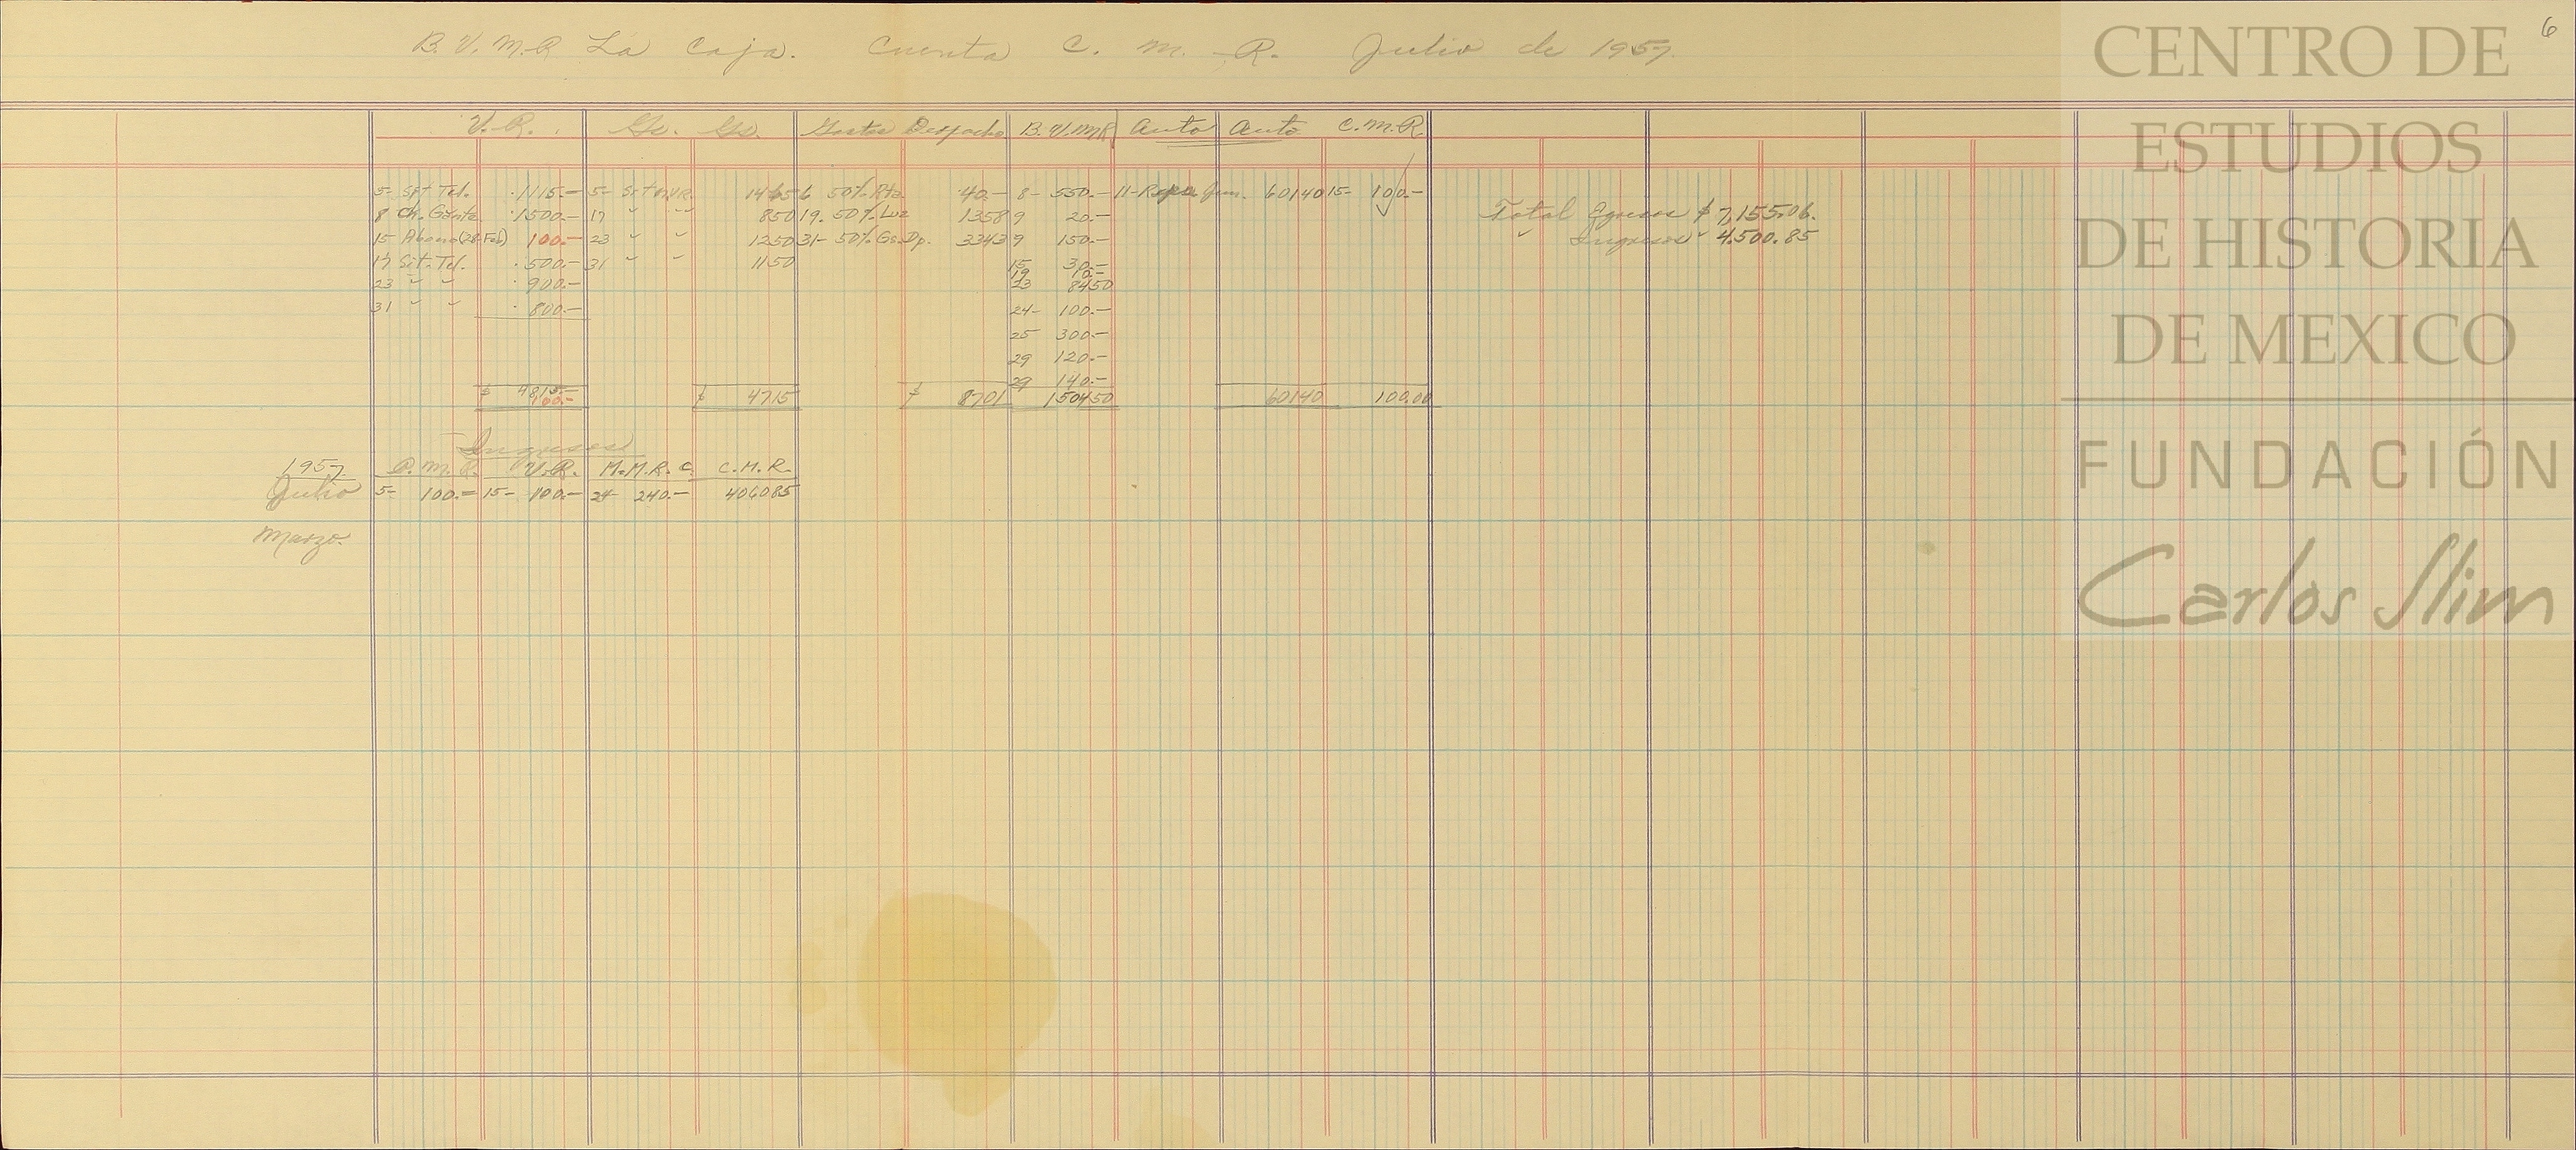 6
B.V.M.R La Caja. Cuenta C. M. R. Julio de 1957.
V.R. Gs. Gs. Gastos Despacho B.V.MR Auto Auto C.M.R.
5- Sit Tel. 1115.- 5- Sit V.R. 1465 6 50% Rta 40.- 8- 550.- 11- Repa Jun. 60140 15- 100.-
8 Ch. Gante 1500.- 17 " " 850 19. 50% Luz 1358 9 20.-
Total Egresos $ 7,155.06.
15 Abono (28-Feb) 100.- 23 " " 1250 31- 50% Gs. Dp. 3343 9 150.-
" Ingresos " 4.500.85
17 Sit. Tel. 500.- 31 " " 1150 15 30.-
19 10.-
23 " " 900.- 23 8450
31 " " 800.- 24- 100.-
25 300.-
29 120.-
29 140.-
$ 4815.- $ 4715 $ 8701 150450 60140 100.00
100.-
Ingresos
1957 P.M.R. V.R. M.M.R.C. C.M.R.
Julio 5- 100.- 15- 100.- 24- 240.- 406085
Marzo.
CENTRO DE
ESTUDIOS
DE HISTORIA
DE MEXICO
FUNDACIÓN
Carlos Slim